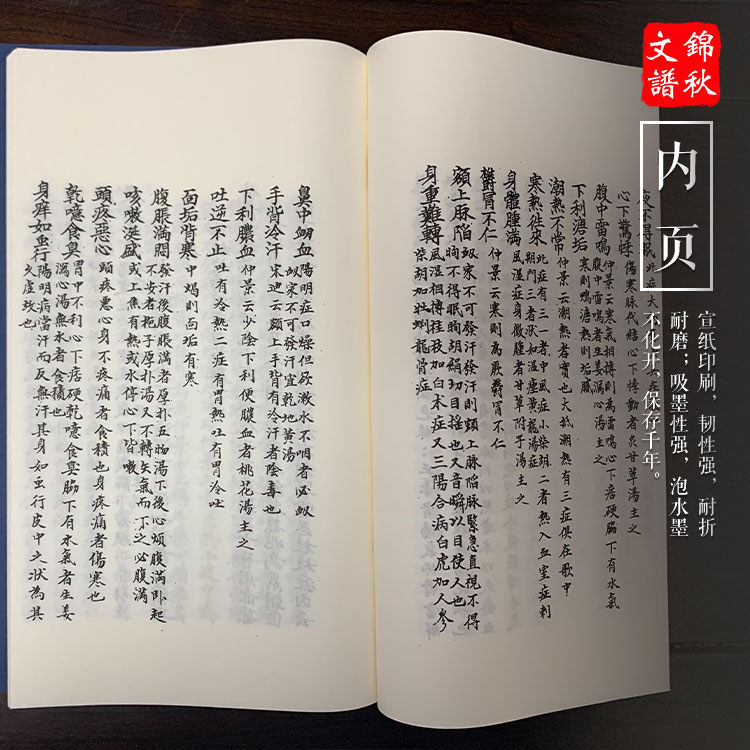 錦秋
文譜
内页
宣纸印刷，韧性强，耐折
耐磨；吸墨性强，泡水墨
不化开，保存千年。
夜不得眠 此症大
心下驚悸 傷寒脉代結心下悸動者炙甘草湯主之
腹中雷鳴 仲景云寒氣相搏則為雷鳴心下痞硬脇下有水氣
腹中雷鳴者生姜瀉心湯主之
下利濃垢 寒則鶩溏熱則垢膩
潮熱不常 仲景云潮熱者實也大抵潮熱有三症俱在歌中
寒熱往來 此症有三者中風症小柴胡二者熱入血室症刺
期門三者狀如温瘧黃龍湯症
身體腫滿 風湿症身微腫者甘草附子湯主之
欝冒不仁 仲景云寒則為厥欝冒不仁
額上脉陷 衂家不可發汗發汗則額上脉陷脉緊急直視不得
眴不得眠眴胡絹切目揺也又音瞬以目使人也
身重難轉 風湿相搏桂枝加白术症又三陽合病白虎加人參
柴胡加牡蜊龍骨症
鼻中衂血 陽明症口燥但欲漱水不咽者必衂
衂家不可發汗宜乾地黄湯
手背冷汗 宋迪云額上手背有冷汗者陰毒也
下利膿血 仲景云少陰下利便膿血者桃花湯主之
吐逆不止 吐有冷熱二症有胃熱吐有胃冷吐
面垢背寒 中暍則面垢有寒
腹脹滿悶 發汗後腹脹滿者厚扑五物湯下後心煩腹滿卧起
不安者梔子厚扑湯又不轉矢氣而下之必腹滿
咳嗽涎盛 或上焦有熱或水停心下皆嗽
頭疼惡心 頭疼悪心身不疼痛者食積也身疼痛者傷寒也
乾噫食臭 胃中不利心下痞硬乾噫食臭脇下有水氣者生姜
瀉心湯無水者食積也
身痒如虫行 陽明病當汗而反無汗其身如虫行皮中之状為其
久虚故也